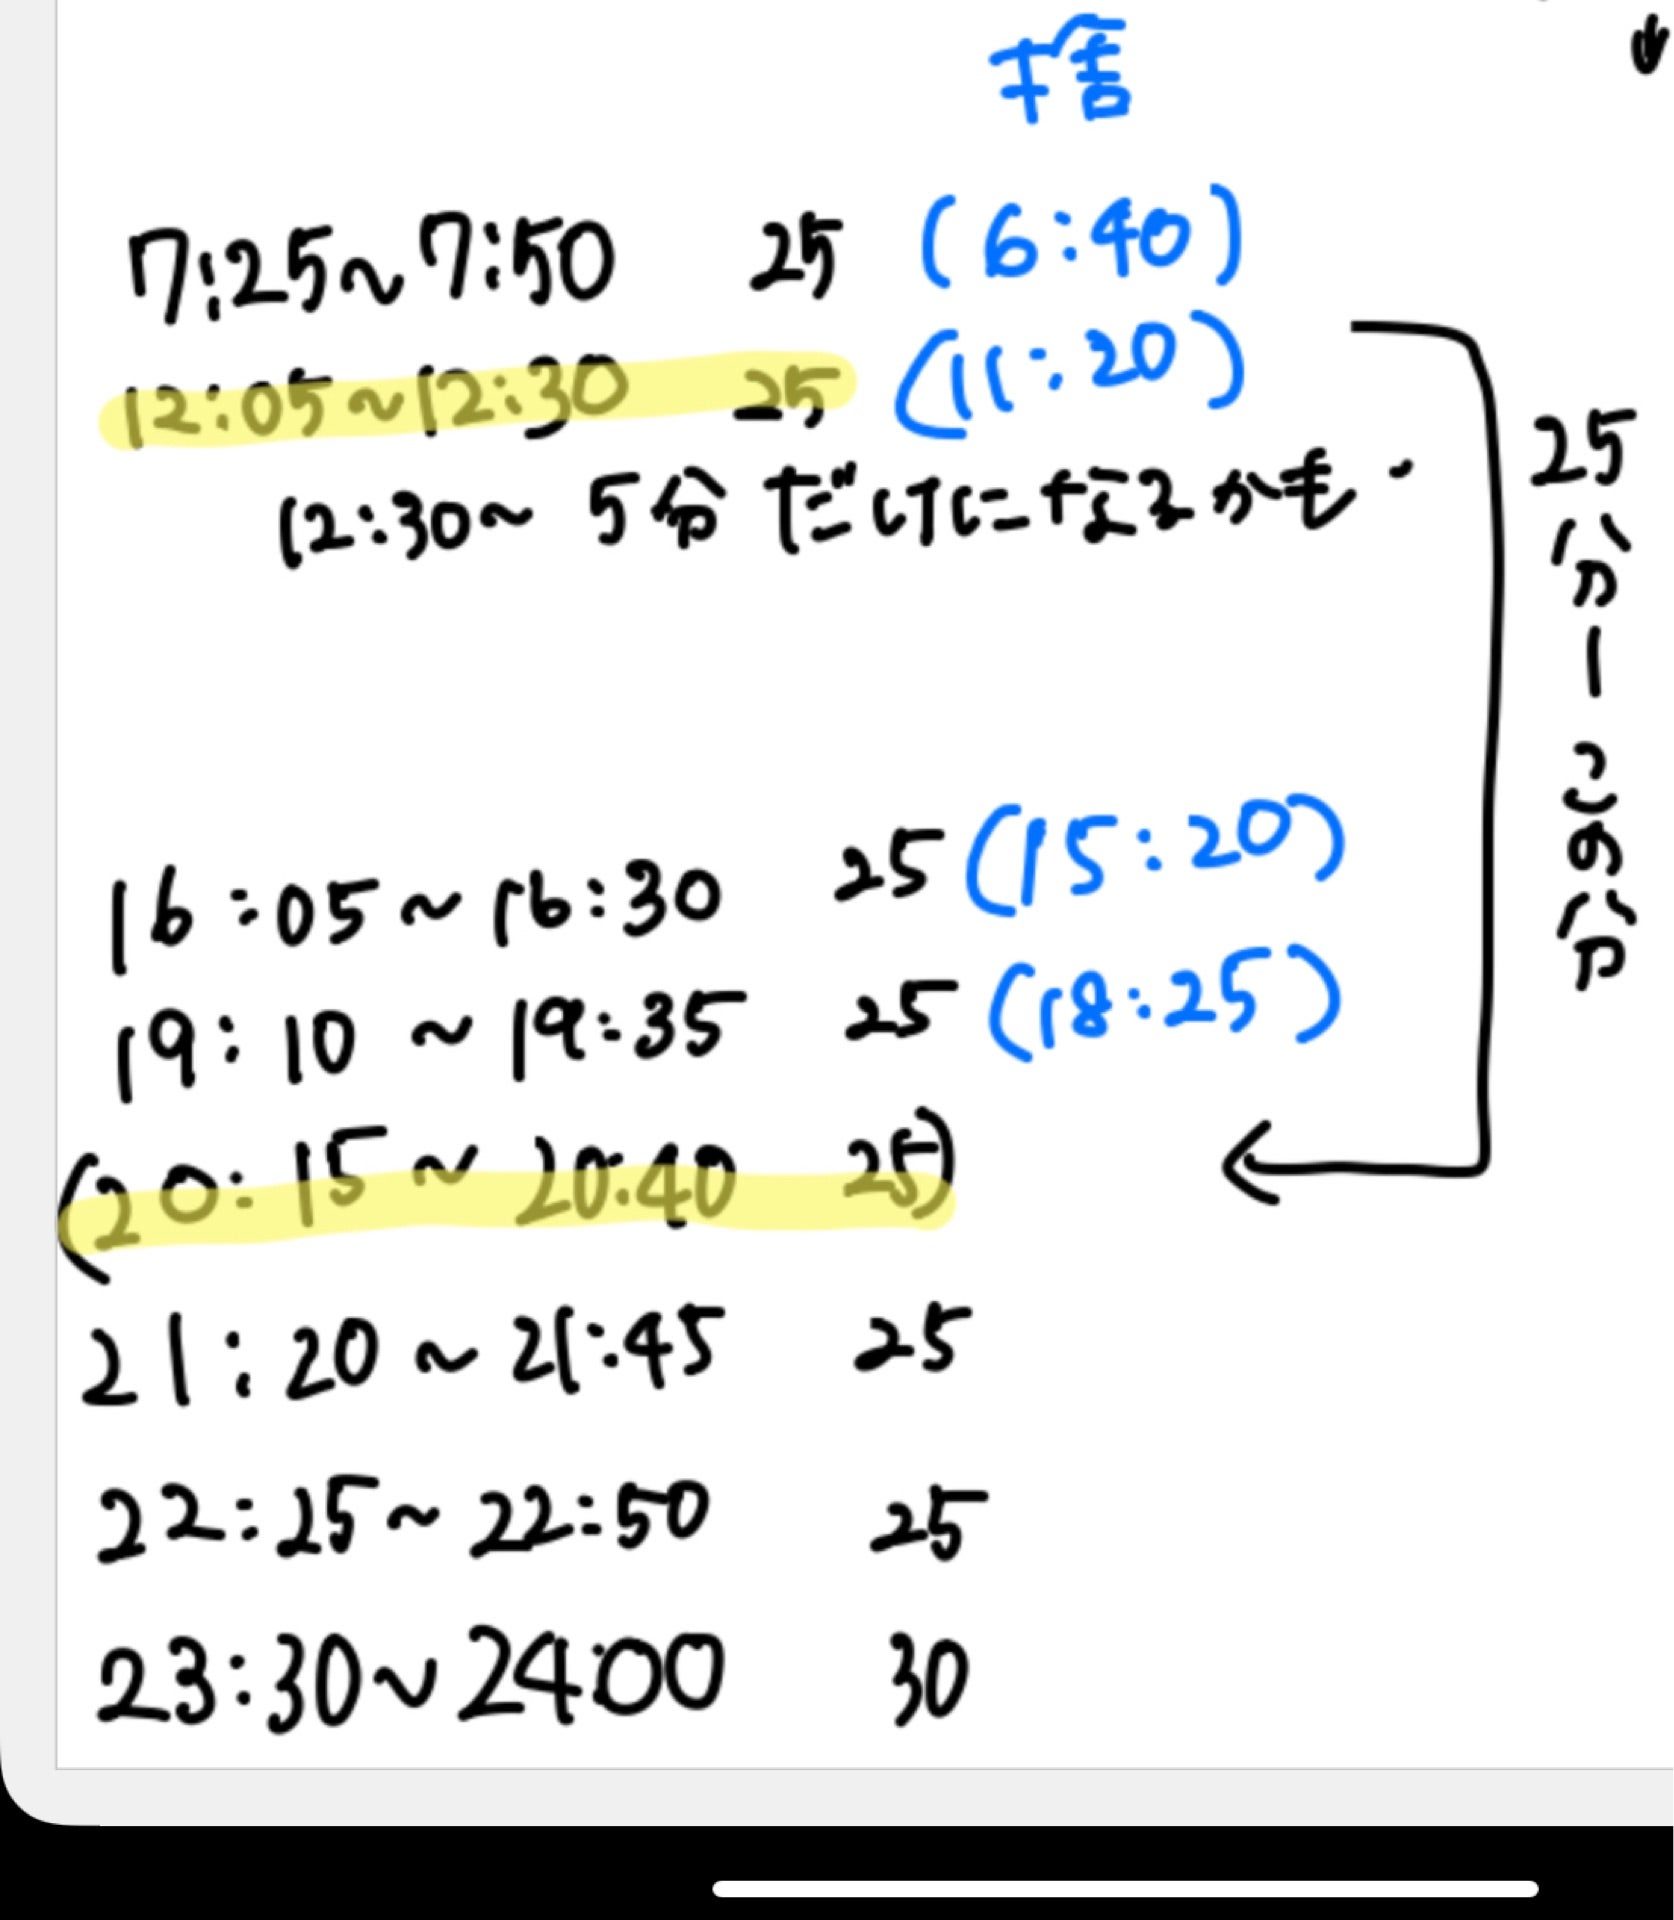 7:25~7:50 25 (6:40)
12:05~12:30 25 (11:20)
12:30~ 5分だけになるかも.
25分一この分
16:05~16:30 25 (15:20)
19:10~19:35 25 (18:25)
(20:15~20:40 25)
21:20~21:45 25
22:25~22:50 25
23:30~24:00 30